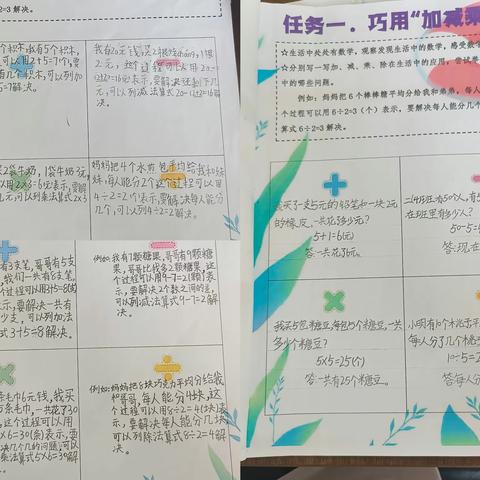 2=3 解决。
个积木,
有5个积木,
可以用2+5=7个,
有几个积木,可以列加
5=7解决。
2元,这个过程可以用
可以列减法算式20-
袋牛奶,1袋牛奶3元
可以列乘法算式2x3
妈妈把4个水煎包平均给我和妹
妹,每人能分2个这个过程可以用
4÷2=2个表示,要解决每人能分几
个,可以列4÷2=2解决。
有3支笔,哥哥有5支
我们一共有8支笔。
个过程可以用3+5=8(支)
表示,要解决一共有
少支,可以列加法
式3+5=8解决。
例如:我有7颗糖果,哥哥有9颗糖
果,哥哥比我多2颗糖果,这
个过程可以用9-7=2(颗)表
示,要解决2个数之间的差,
可以列减法算式9-7=2解决。
条毛巾6元钱,我买
5条毛巾,一共花了30
这个过程可以用
x6=30(条)表示,要
决几个几的问题,可以
乘法算式5x6=30解
例如:妈妈把8块巧克力平均分给我
和哥哥,每人能分4块,这
个过程可以用8÷2=4(块)表
示,要解决每人能分几块
可以列除法算式8÷2=4解
任务一. 巧用“加减乘
☆生活中处处有数学,观察发现生活中的数学,感受数学
☆分别写一写加、减、乘、除在生活中的应用,尝试带
中的哪些问题。
例如:妈妈把 6 个棒棒糖平均分给我和弟弟,每人
个过程可以用 6÷2=3(个)表示,要解决每人能分几个
算式 6÷2=3 解决。
买了一支5元的钢笔和一块1元
的橡皮,一共花多少元?
5+1=6(元)
答:一共花了6元。
在班里有多少人?
50-5=4
答:现在
我买5包糖豆,每包5个糖豆,一共
多少个糖豆?
5x5=25(个)
答:一共有25个糖豆。
小明有10个木
每人分了几个
10÷5=2
答:每人分